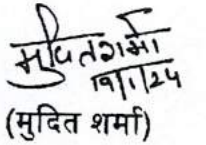 मुदित शर्मा
19/1/24
(मुदित शर्मा)